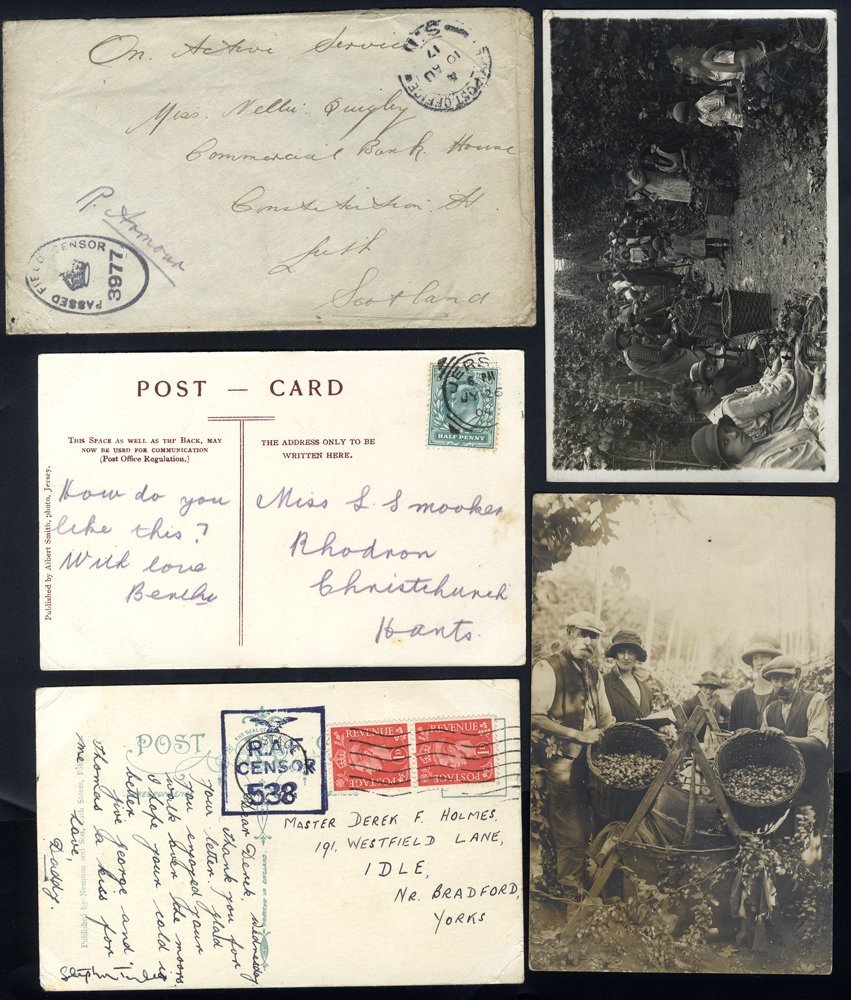 On Active Service
POST OFFICE
10 AU
17
Miss. Nellie Quigley
Commercial Bank House
Constitution St.
Leith
Scotland
P. Armour
PASSED FIELD CENSOR
3977
POST — CARD
THIS SPACE AS WELL AS THE BACK, MAY
NOW BE USED FOR COMMUNICATION
(Post Office Regulation.)
THE ADDRESS ONLY TO BE
WRITTEN HERE.
HALF PENNY
Published by Albert Smith, photo, Jersey.
How do you
like this?
With love
Bertha
Miss L. Smooker
Rhodron
Christchurch
Hants.
POST
R.A.F.
CENSOR
538
REVENUE
REVENUE
POSTAGE
POSTAGE
Wednesday
Dear Derek,
Thank you for
your letter, glad
you enjoyed your
walk over the moors
I hope your cold is
better.
Give George and
Thomas a kiss for
me.
Love,
Daddy.
MASTER DEREK F. HOLMES.
191, WESTFIELD LANE,
IDLE,
NR. BRADFORD,
YORKS
Published by Newman and